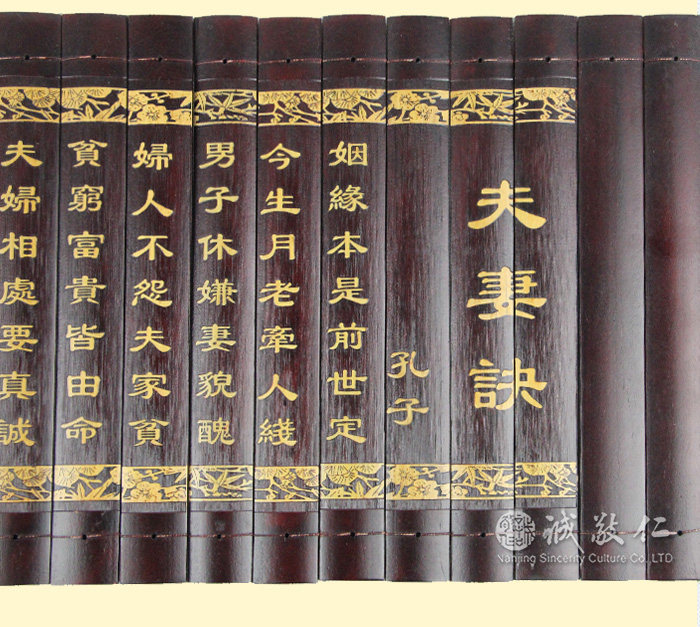 夫妻訣
孔子
姻緣本是前世定
今生月老牽人綫
男子休嫌妻貌醜
婦人不怨夫家貧
貧窮富貴皆由命
夫婦相處要真誠
诚敬仁
Nanjing Sincerity Culture Co., LTD